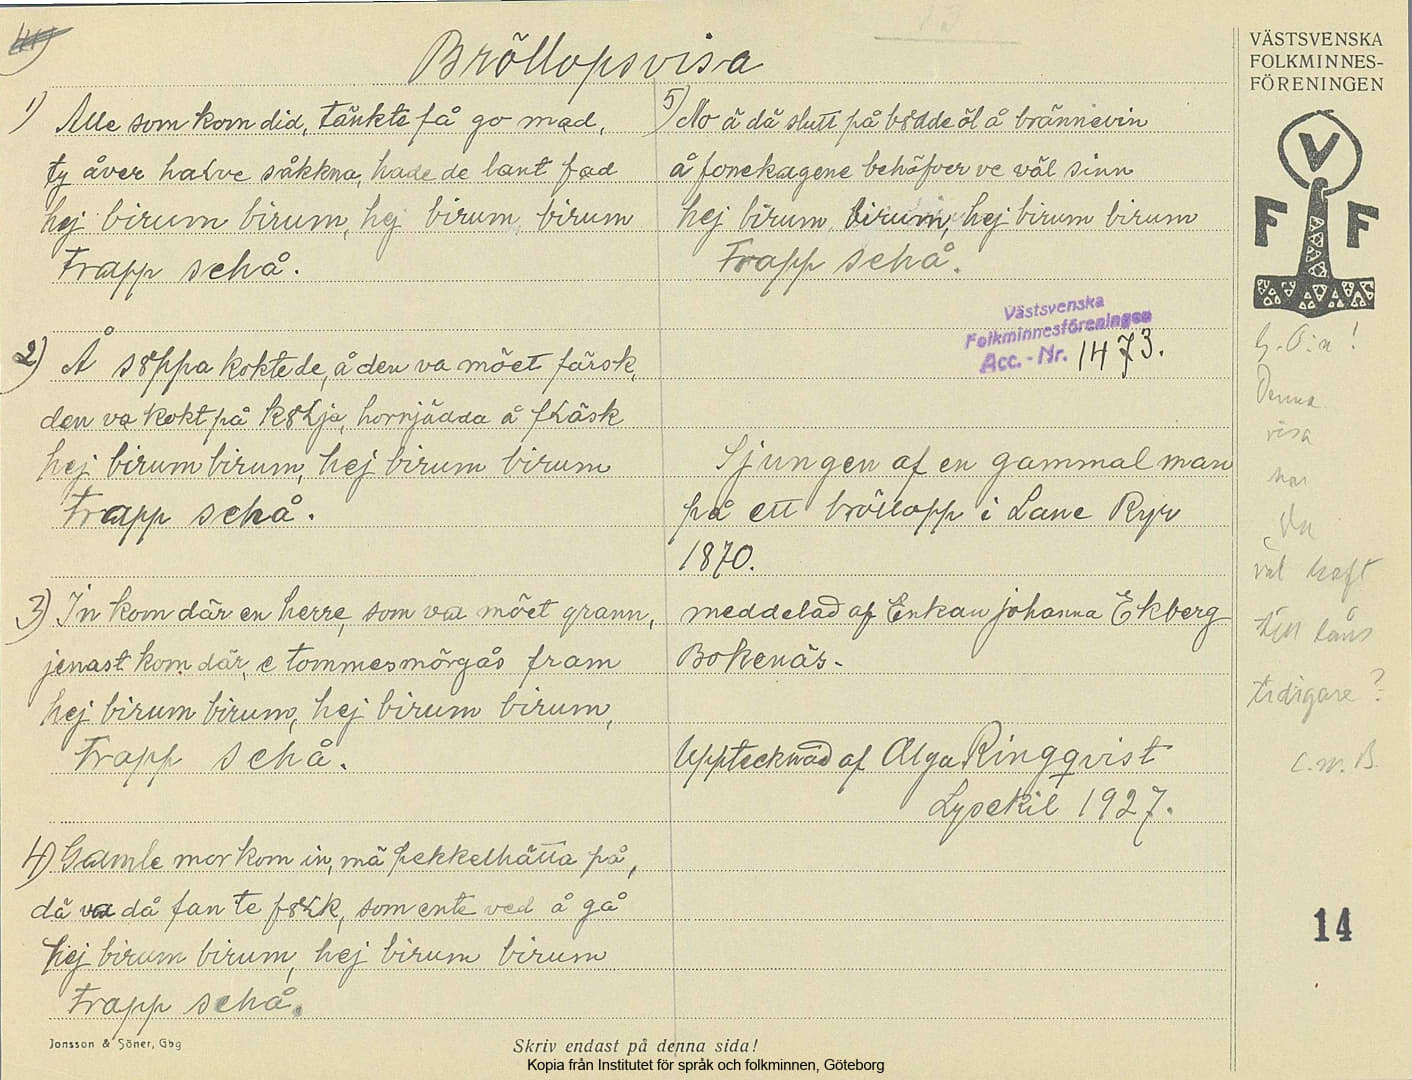 13
Bröllopsvisa
1) Alle som kom did, tänkte få go mad,
ty åver halve såkkna, hade de lant fad
hej birum birum, hej birum, birum
Trapp schå.
2) Å s8ppa kokte de, å den va möet färsk,
den va kokt på k8Lja, hornjädda å fLäsk
hej birum birum, hej birum birum
Trapp schå.
3) In kom där en herre, som va möet grann,
jenast kom där, e tommesmörgås fram
hej birum birum, hej birum birum,
Trapp schå.
4) Gamle mor kom in, mä pekkelhätta på,
då va då fan te f8Lk, som ente ved å gå
hej birum birum, hej birum birum
Trapp schå.
5) No ä då slutt på b8dde öl å brännevin
å fonekagene behöfver ve väl sinn
hej birum, birum, hej birum birum
Trapp schå.
Västsvenska
Folkminnesföreningen
Acc.-Nr. 1473.
Sjungen af en gammal man
på ett bröllopp i Lane Ryr
1870.
meddelad af Enkan Johanna Ekberg
Bokenäs.
Upptecknad af Olga Ringqvist
Lysekil 1927.
VÄSTSVENSKA
FOLKMINNES-
FÖRENINGEN
V
F F
Denna
visa
har
Du
väl haft
till låns
tidigare?
C.W.B.
14
Jonsson & Söner, Gbg
Skriv endast på denna sida!
Kopia från Institutet för språk och folkminnen, Göteborg